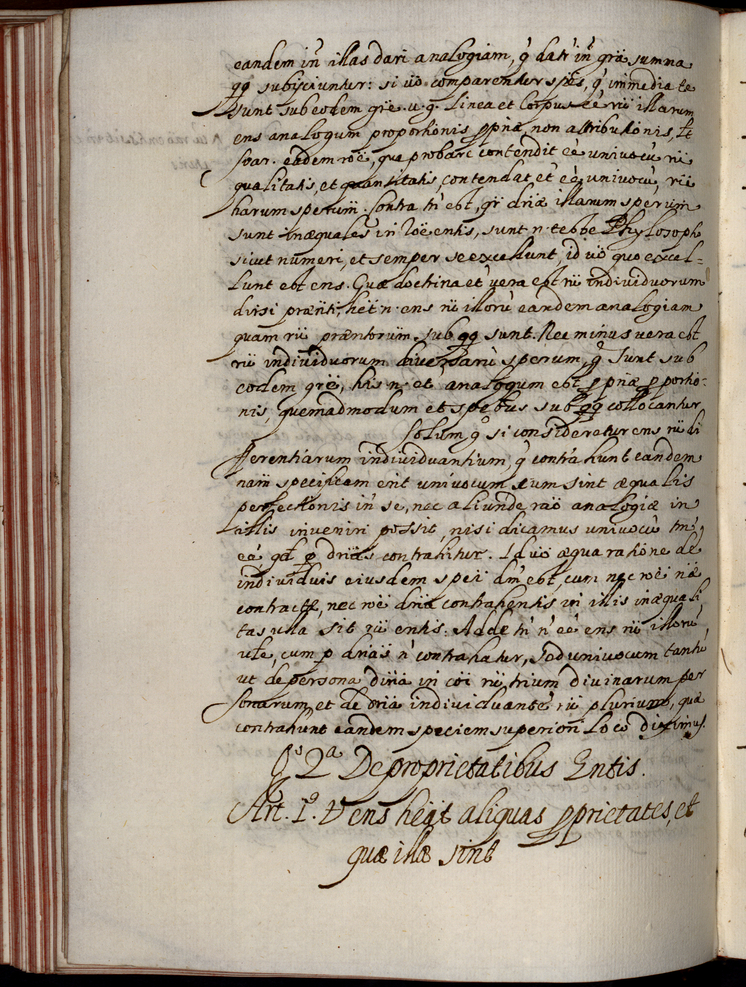 eandem in̄ illas dari analogiam, q̄ datr̄ in̄ grā summa
qq subijciuntur: si uō comparentur spēs, q̄ immediate
sunt sub eodem grē. u.g. linea et corpus eē rū illarum
ens analogum proportionis ꝓpriæ, non attributionis, et
Soar. eadem rōē, qua probare contendit eē univocū rū
qualitatis, et quantitatis, contendat et̄ eē univocū, rū
harum sperum. Contra tn̄ est, qr̄ driæ illarum sperum
sunt inæquales in rōe entis, sunt n. teste Phylosoph
sicut numeri, et semper se excedunt, id uō quo excel-
lunt est ens. Quæ doctrina et̄ vera est rū individuorum
diversi præn̄ti, het n. ens rū illorū eandem analogiam
quam rū prænt̄orum sub qq sunt. Nec minus vera est
rū individuorum diversarū sperum, q̄ sunt sub
eodem grē, his n. et analogum est ꝓpriæ ꝓportio-
nis, quemadmodum et spēbus sub qq collocantur.
Solum q̄ si consideretur ens rū di
fferentiarum individuantium, q̄ contrahunt eandem
nam̄ specificam erit univocum cum sint æqualis
perfectionis in̄ se, nec aliunde rāō analogiæ in
illis inveniri possit, nisi dicamus univocū tn̄
eē, qd̄ ꝑ driās contrahitur. Id uō æqua ratione de
individuis eiusdem spēi dm̄ est, cum nec rōē næ
contractæ, nec rōē driæ contrahentis in illis inæquali
tas ulla sit rū entis. Adde tn̄ n̄ eē ens rū illorū
ule, cum ꝑ driās n̄ contrahatur, sed univocum tantū
ut de persona divīa in cōi rū trium divinarum per
sonarum et de dria individuante, rū plurium, quæ
contrahunt eandem speciem superiori loco diximus.
Qº 2ª De proprietatibus Entis.
Art. 1º. V ens heāt aliquas ꝓprietates, et
quæ illæ sint